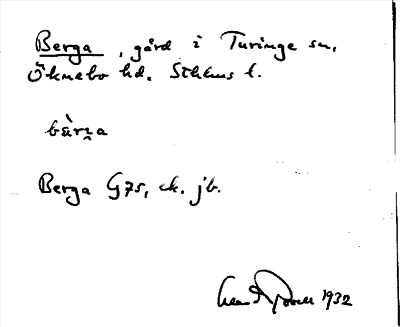 Berga, gård i Turinge sn,
Öknebo hd. Sthlms l.
bὰrȝa
Berga G75, ek. jb.
1932